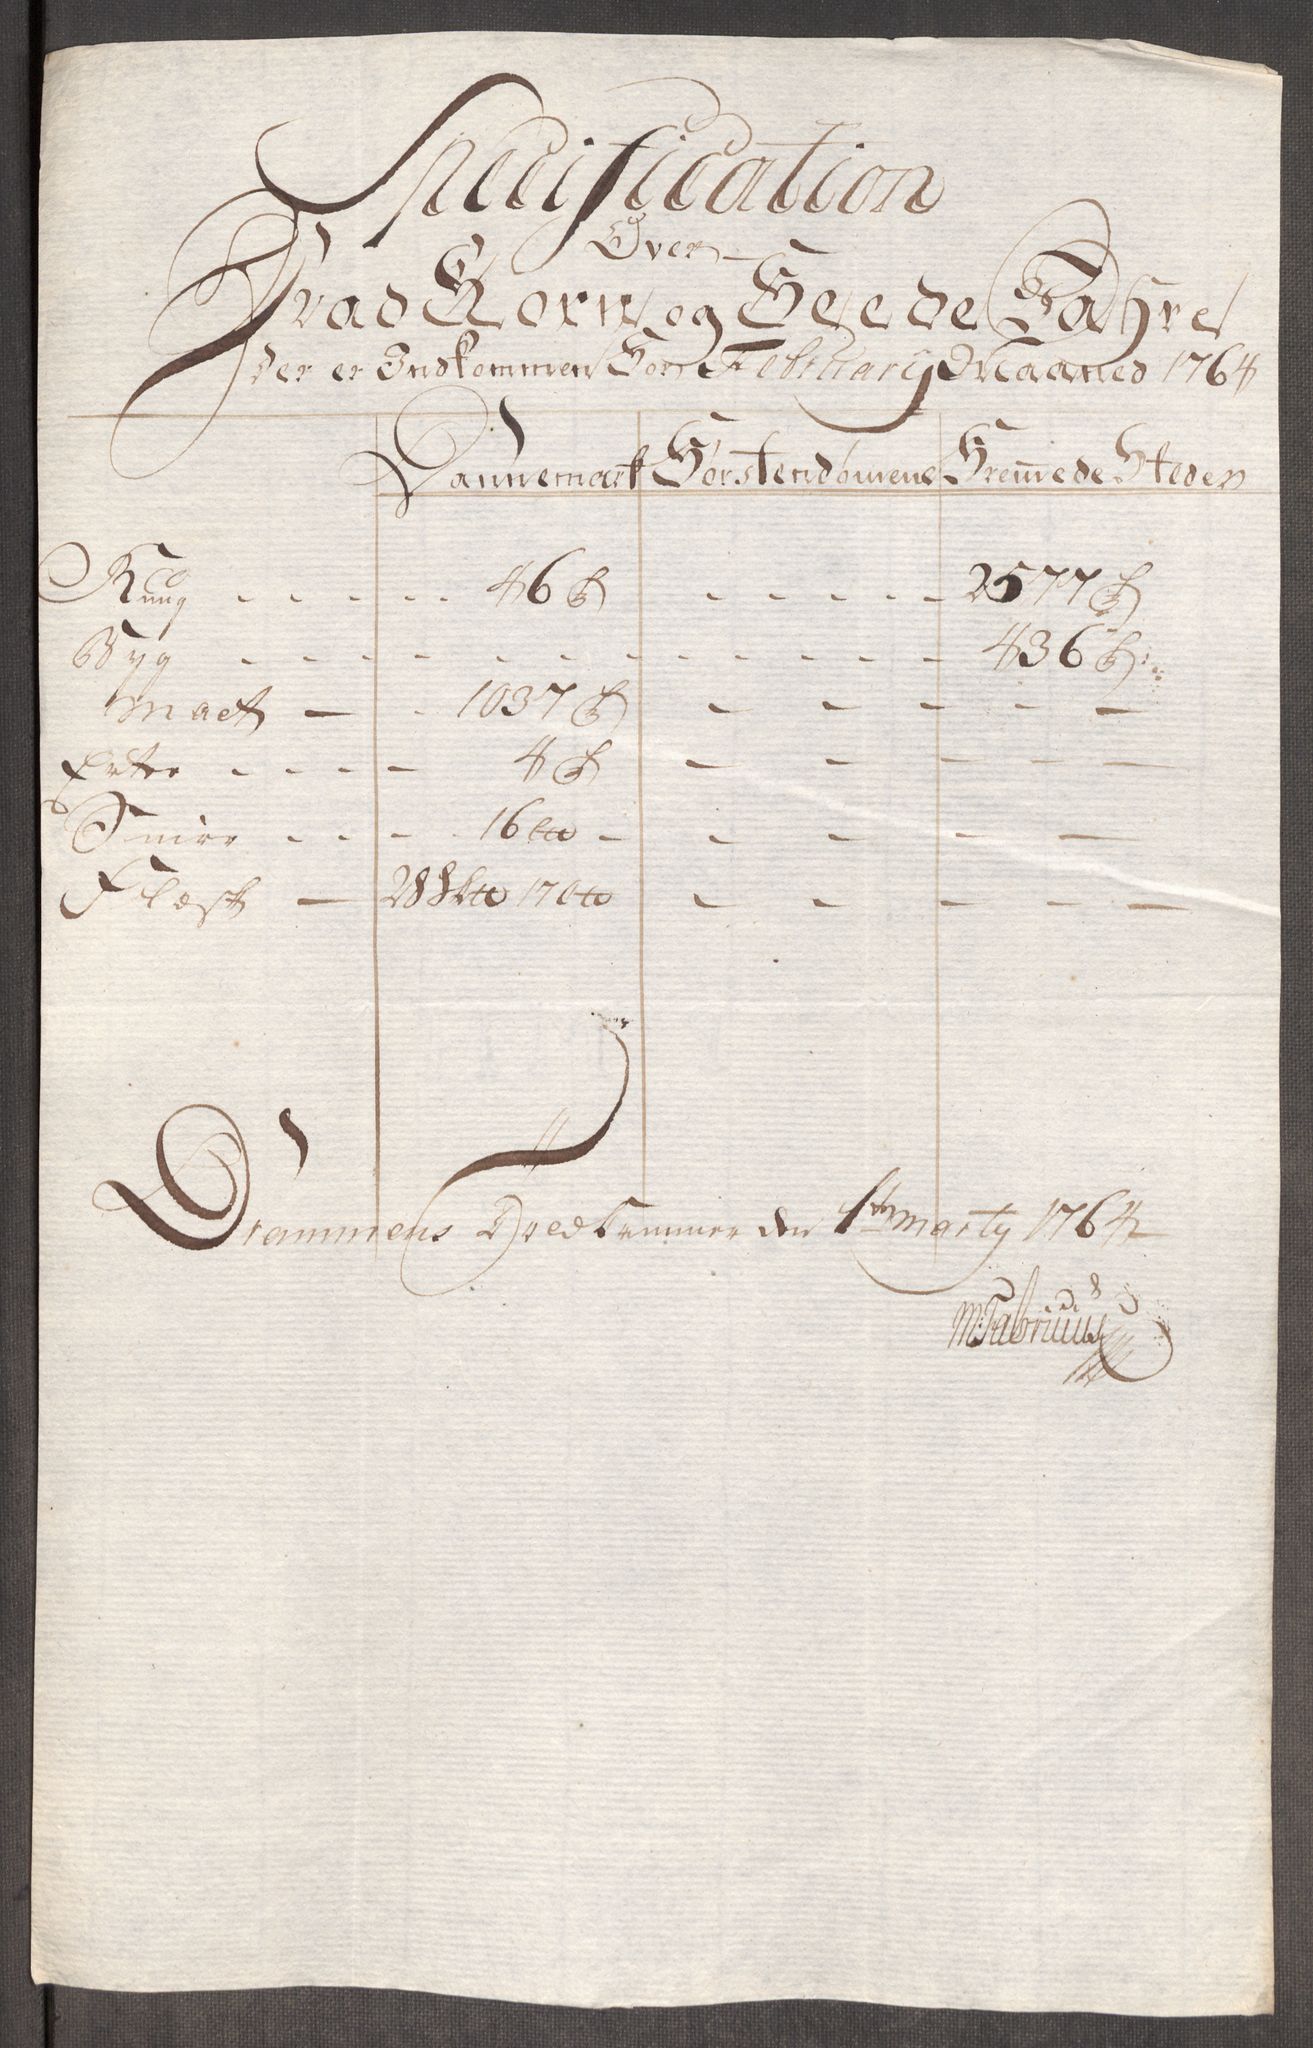 Specification
Over
Hvad Korn og Feede Vahre
der er Indkommen for February Maaned 1764
Dannemark Førstendomene Fremede Steder
Rug 46 2577
Byg 436
Malt 1037
Erter 4
Smør 16
Flesk 28
Drammens den 1te Marty 1764
M Fabricius